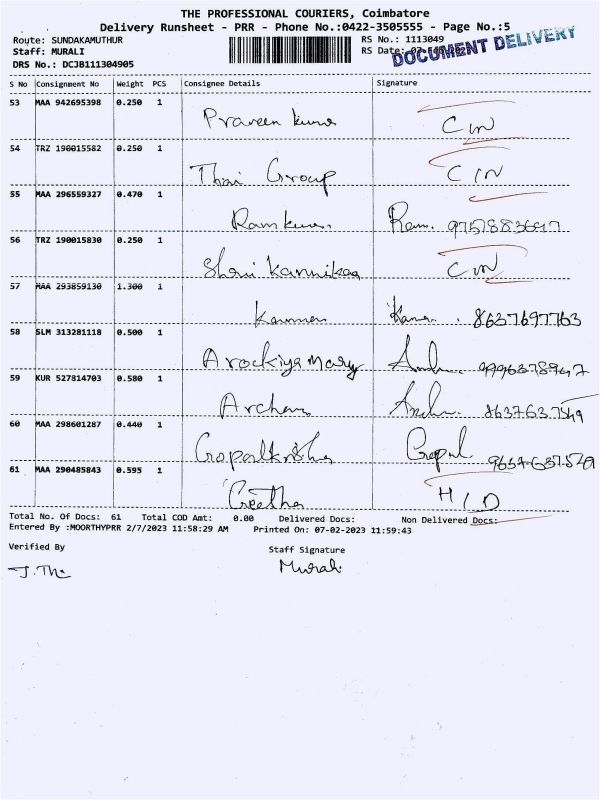 THE PROFESSIONAL COURIERS, Coimbatore
Delivery Runsheet - PRR - Phone No.:0422-3505555 - Page No.:5
Route: SUNDAKAMUTHUR
RS No.: 1113049
Staff: MURALI
RS Date:
DOCUMENT DELIVERY
DRS No.: DCJB111304905
S No Consignment No Weight PCS Consignee Details Signature
53 MAA 942695398 0.250 1 Praveen kumar C/N
54 TRZ 190015582 0.250 1 Thai Group C/N
55 MAA 296559327 0.470 1 Ramkumar Ram.
56 TRZ 190015830 0.250 1 Shri Kannikaa C/N
57 MAA 293859130 1.300 1 8637697763
58 SLM 313281118 0.500 1 Arockiya Mary
59 KUR 527814703 0.580 1 Archana
60 MAA 298601287 0.440 1 Gopalkrishna Gopal
61 MAA 290485843 0.595 1 Geetha H/D
Total No. Of Docs: 61 Total COD Amt: 0.00 Delivered Docs: Non Delivered Docs:
Entered By :MOORTHYPRR 2/7/2023 11:58:29 AM Printed On: 07-02-2023 11:59:43
Verified By Staff Signature
Murali